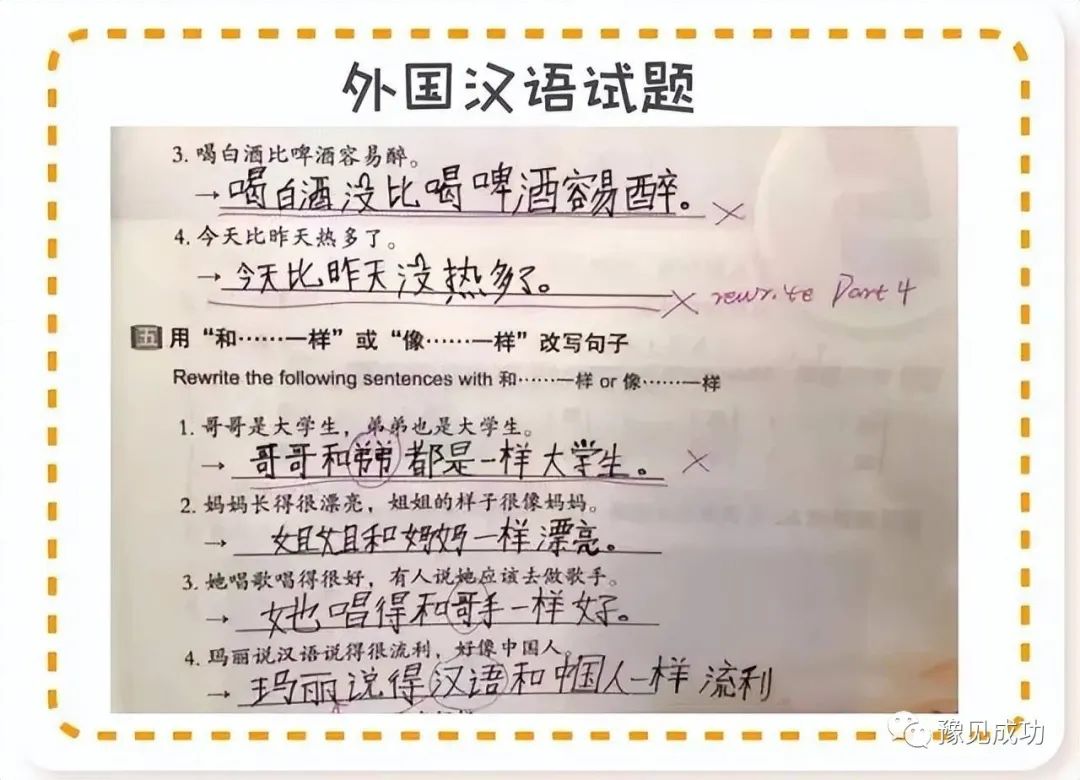 外国汉语试题
3. 喝白酒比啤酒容易醉。
→ 喝白酒没比喝啤酒容易醉。 ×
4. 今天比昨天热多了。
→ 今天比昨天没热多了。 × rewrite Part 4
五 用“和……一样”或“像……一样”改写句子
Rewrite the following sentences with 和……一样 or 像……一样
1. 哥哥是大学生，弟弟也是大学生。
→ 哥哥和弟弟都是一样大学生。 ×
2. 妈妈长得很漂亮，姐姐的样子很像妈妈。
→ 姐姐和妈妈一样漂亮。
3. 她唱歌唱得很好，有人说她应该去做歌手。
→ 她唱得和哥手一样好。
4. 玛丽说汉语说得很流利，好像中国人。
→ 玛丽说得汉语和中国人一样流利
豫见成功